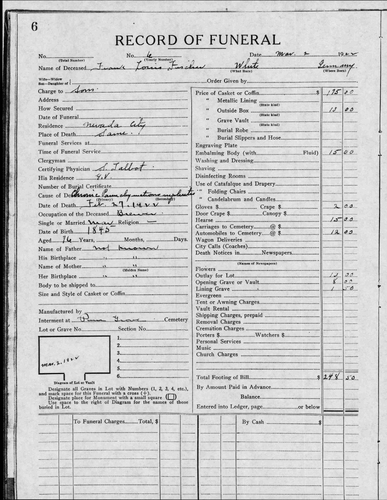 6
RECORD OF FUNERAL
No. 6 Date Mar. 2 1922
(Total Number) (Yearly Number)
Name of Deceased Frank Louis Fischer White Germany
(What Race) (Where Born)
Wife—Widow
Son—Daughter of
Order Given by
Charge to Son
Address
How Secured
Date of Funeral
Residence Nevada City
Place of Death Same
Funeral Services at
Time of Funeral Service
Clergyman
Certifying Physician S. Talbot
His Residence
Number of Burial Certificate
Cause of Death Chronic
Date of Death Feb. 27, 1922
Occupation of the Deceased Brewer
Single or Married Religion
Date of Birth 1845
Aged 76 Years, Months, Days
Name of Father not known
His Birthplace
Name of Mother
(Maiden Name)
Her Birthplace
Body to be shipped to
Size and Style of Casket or Coffin
Manufactured by
Interment at Pine Grove Cemetery
Lot or Grave No. Section No.
1.
2.
3.
4.
5.
6.
7.
8.
Mar. 2, 1922
Diagram of Lot or Vault
Designate all Graves in Lot with Numbers (1, 2, 3, 4, etc.),
and mark space for this Funeral with a cross (+).
Designate place for Monument with a small square
Use space to the right of Diagram for names of those
buried in Lot.
Price of Casket or Coffin $ 175 00
" Metallic Lining
(State Kind)
" Outside Box
(State Kind)
" Grave Vault
(State Kind)
" Burial Robe
" Burial Slippers and Hose
Engraving Plate
Embalming Body (with Fluid) 15 00
Washing and Dressing
Shaving
Disinfecting Rooms
Use of Catafalque and Drapery
" Folding Chairs
" Candelabrum and Candles
Gloves $ Crape $ 2 00
Door Crape Canopy $
Hearse 15 00
Carriages to Cemetery @ $
Automobiles to Cemetery @ $ 12 00
Wagon Deliveries
City Calls (Coach)
Death Notices in Newspapers
(Names of Newspapers)
Flowers
Outlay for Lot
Opening Grave or Vault 8 00
Lining Grave 1 50
Evergreen
Tent or Awning
Vault Rental
Shipping Charges, prepaid
Removal Charges
Cremation Charges
Porters $ Watchers $
Personal Services
Music
Church Charges
Total Footing of Bill $ 248 50
By Amount Paid in Advance
Balance
Entered into Ledger, page or below
To Funeral Charges, Total $ By Cash $